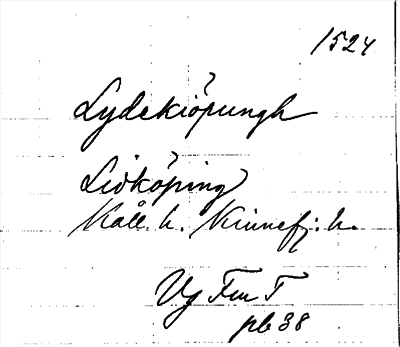 1524
Lydekiöpungh
Lidköping
Kåll. h. Kinnefj. h.
Vg Fm T
pb 38